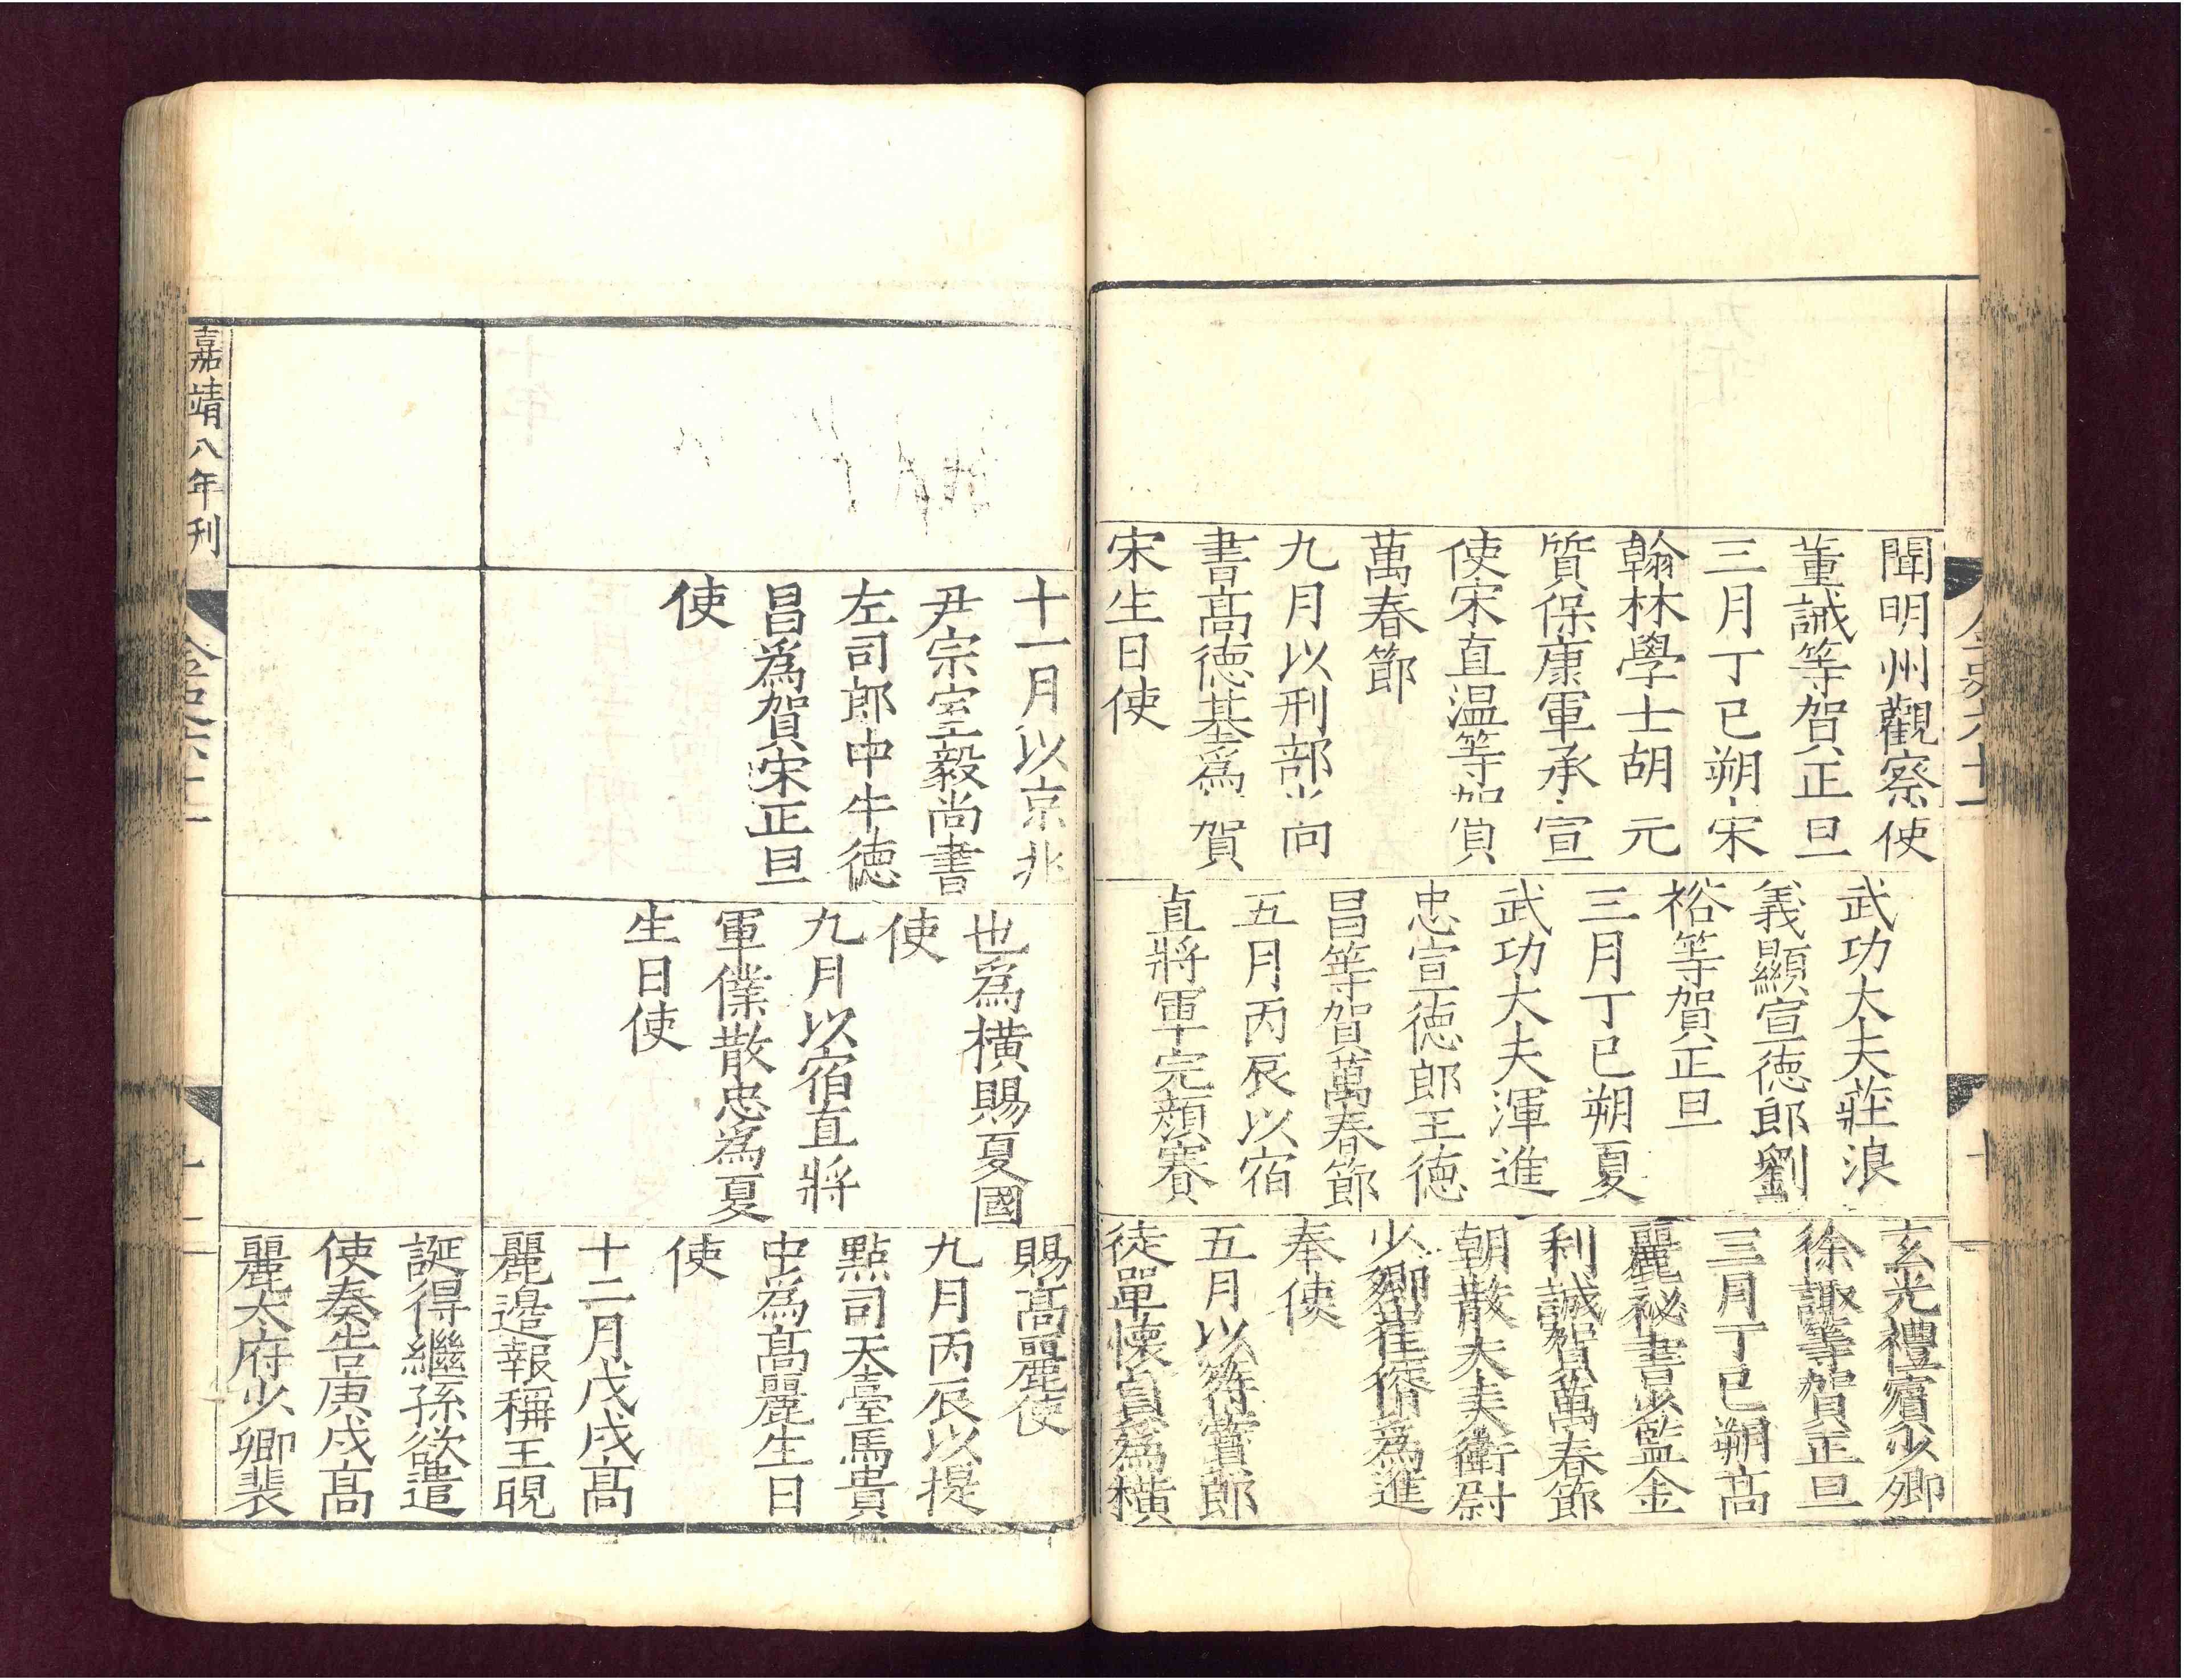 聞明州觀察使
董誠等賀正旦
三月丁巳朔宋
翰林學士胡元
質保康軍承宣
使宋直温等賀
萬春節
九月以刑部尚
書高德基為賀
宋生日使
武功大夫莊浪
義顯宣德郎劉
裕等賀正旦
三月丁巳朔夏
武功大夫渾進
忠宣德郎王德
昌等賀萬春節
五月丙辰以宿
直將軍完顏賽
玄光禮賓少卿
徐諏等賀正旦
三月丁巳朔高
麗秘書少監金
利誠賀萬春節
朝散大夫衛尉
少卿崔偦為進
奉使
五月以符寶郎
徒單懷貞為橫
金史六十一
十
十一月以京兆
尹宗室毅尚書
左司郎中牛德
昌為賀宋正旦
使
也為橫賜夏國
使
九月以宿直將
軍僕散忠為夏
生日使
賜高麗使
九月丙辰以提
點司天臺馬貴
中為高麗生日
使
十二月戊戌高
麗邊報稱王晛
誕得繼孫欲遣
使奏告庚戌高
麗太府少卿裴
嘉靖八年刊